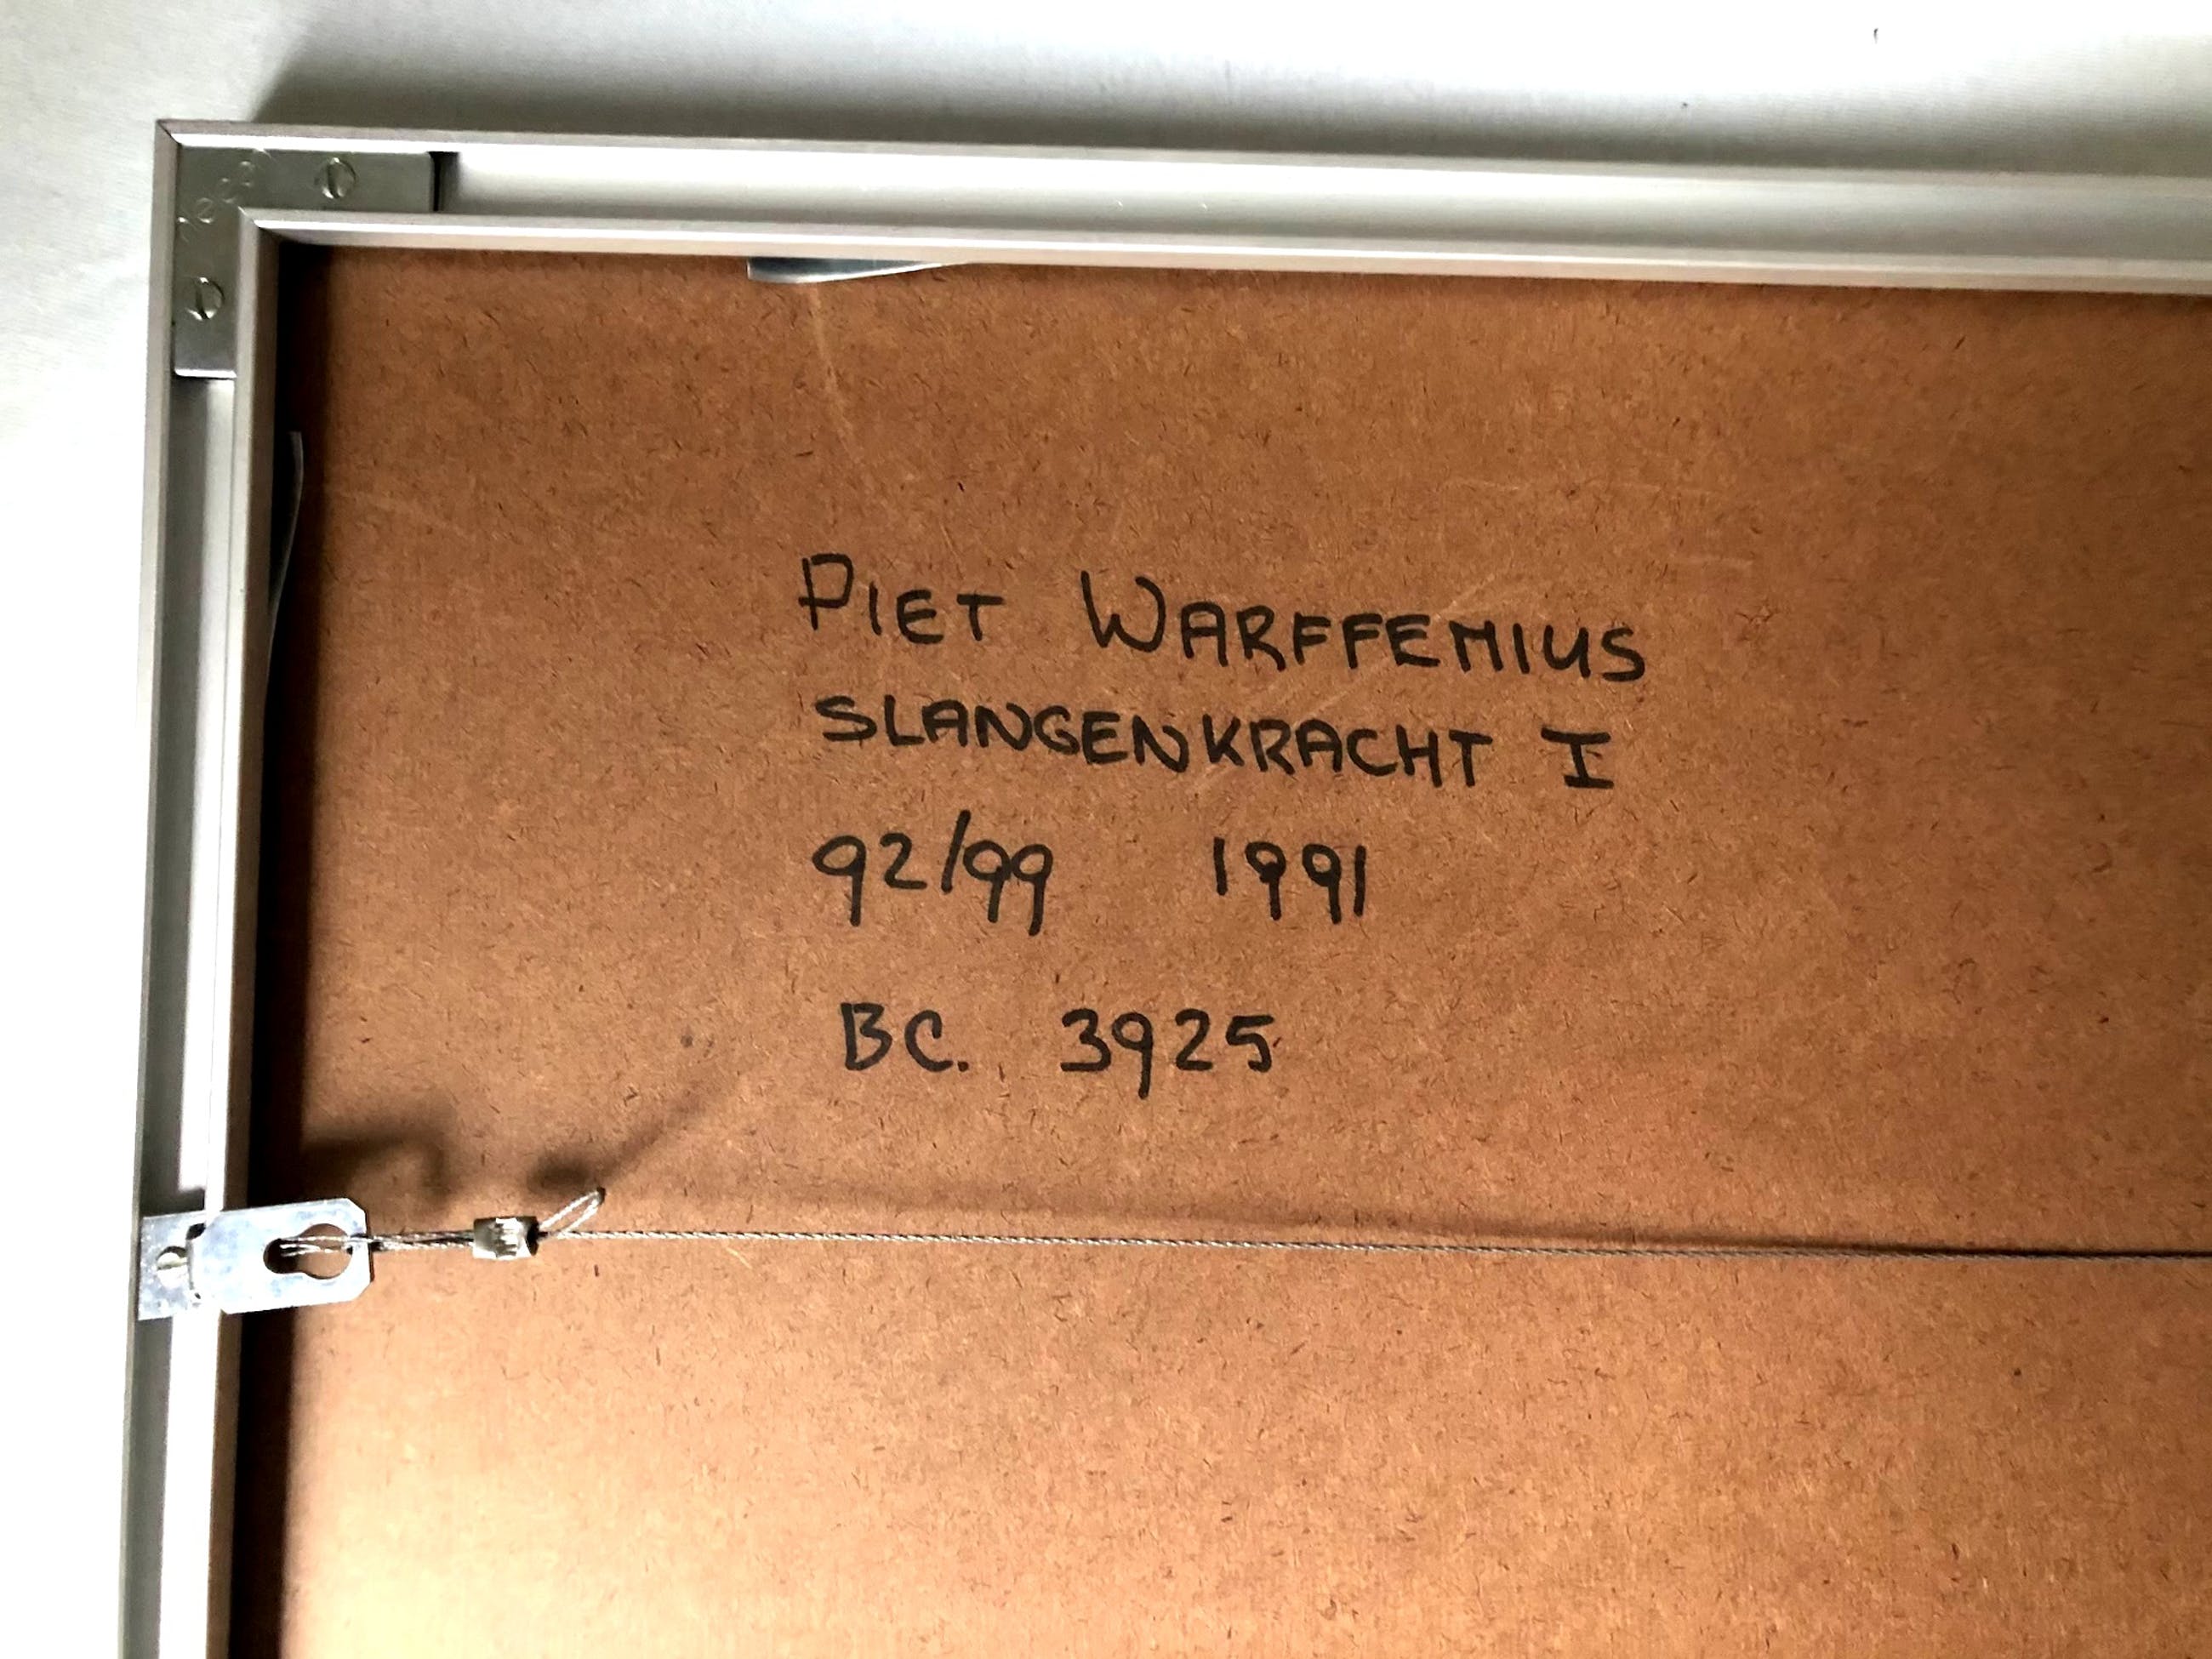 PIET WARFFEMIUS
SLANGENKRACHT I
92/99 1991
BC. 3925